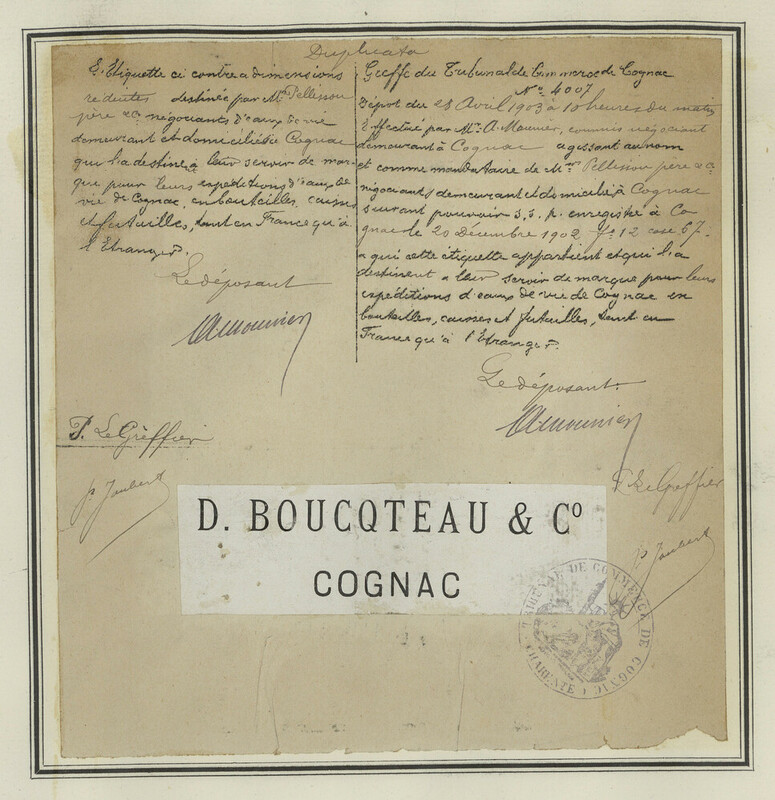 Duplicata
L'Etiquette ci contre a dimensions
réduites destinée par Mrs Pellisson
père & Co négociants d'eaux de vie
demeurant et domiciliés à Cognac
qui l'a destine à leur servir de mar-
que pour leurs expéditions d'eaux de
vie de Cognac, en bouteilles, caisses
et futailles, tant en France qu'à
l'Etranger.
Le déposant
AMounier
P. Le Greffier
P. Joubert
Greffe du Tribunal de Commerce de Cognac
No 4007
Dépôt du 28 Avril 1903 à 10 heures du matin
Effectué par Mr. A. Mounier, commis négociant
demeurant à Cognac agissant au nom
et comme mandataire de Mrs Pellisson père & Co
négociants demeurant et domiciliés à Cognac
suivant pouvoir s.s.p. enregistré à Co
gnac le 20 Décembre 1902 fo 12 case 57.
a qui cette étiquette appartient et qui l'a
destinent a leur servir de marque pour leurs
expéditions d'eaux de vie de Cognac en
bouteilles, caisses et futailles, tant en
France qu'à l'Etranger.
Le déposant.
AMounier
P. Le Greffier
P. Joubert
D. BOUCQTEAU & Co
COGNAC
TRIBUNAL DE COMMERCE DE COGNAC
CHARENTE